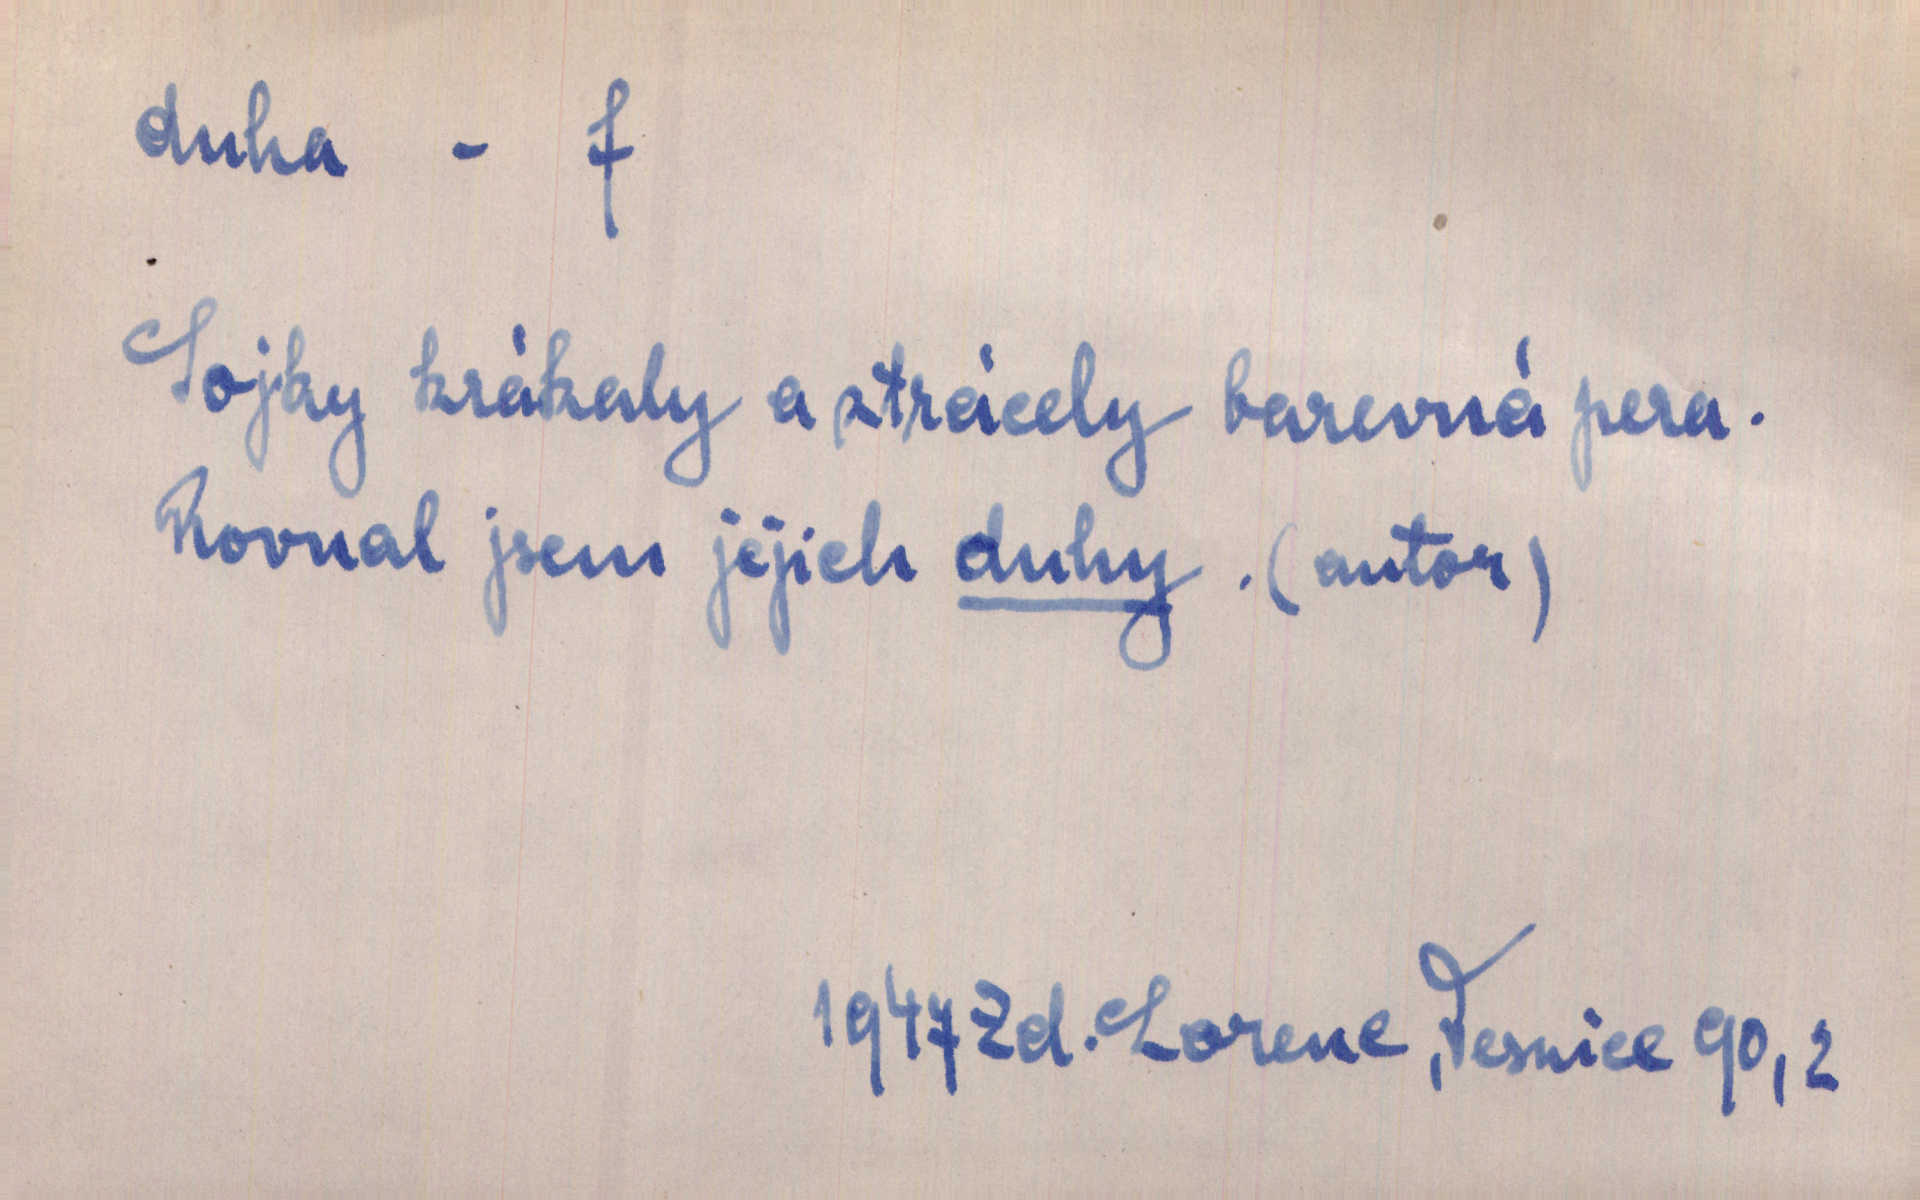 duha - f
Sojky krákaly a ztrácely barevná pera.
Rovnal jsem jejich duhy. (autor)
1947 Zd. Lorenc, Vesnice 90, 2